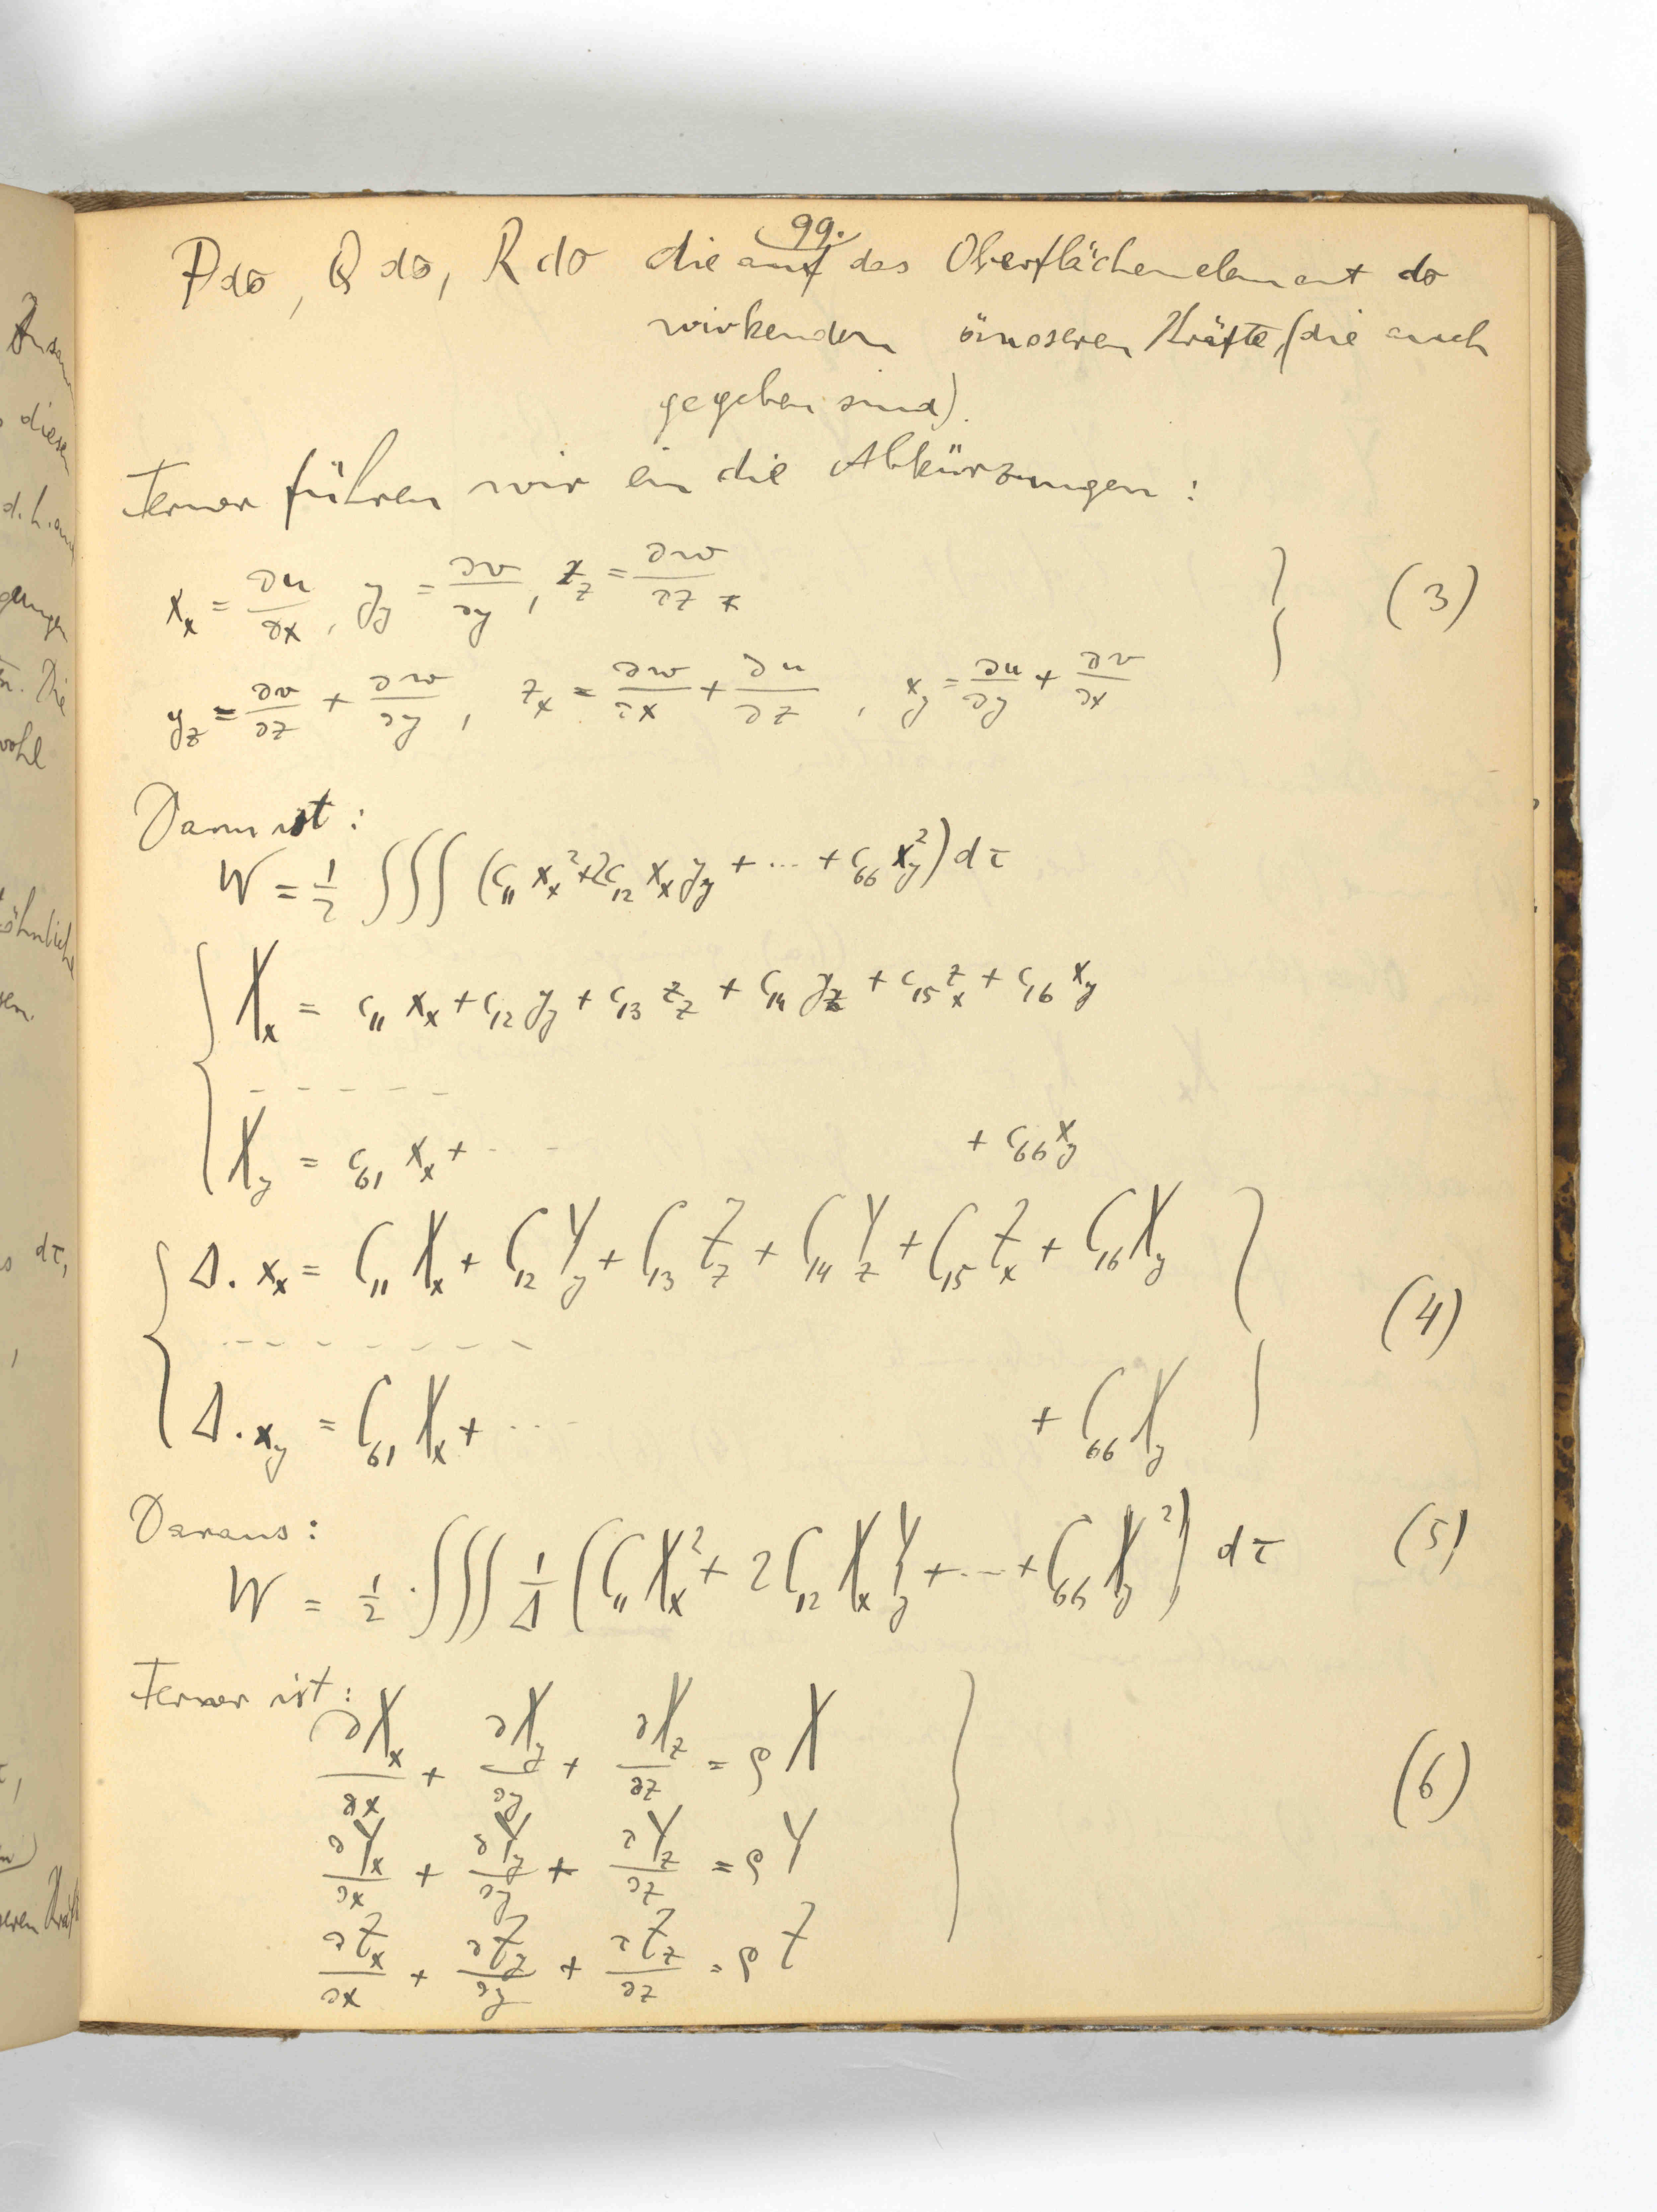 99.
P do, Q do, R do die auf das Oberflächenelement do
wirkenden äusseren Kräfte, (die auch
gegeben sind).
Ferner führen wir ein die Abkürzungen:
x_x = ∂u/∂x, y_y = ∂v/∂y, z_z = ∂w/∂z
y_z = ∂v/∂z + ∂w/∂y, z_x = ∂w/∂x + ∂u/∂z, x_y = ∂u/∂y + ∂v/∂x } (3)
Dann ist:
W = 1/2 ∫∫∫ (c_11 x_x^2 + 2c_12 x_x y_y + ... + c_66 x_y^2) dτ
X_x = c_11 x_x + c_12 y_y + c_13 z_z + c_14 y_z + c_15 z_x + c_16 x_y
- - - - -
X_y = c_61 x_x + - - + c_66 x_y
Δ. x_x = C_11 X_x + C_12 Y_y + C_13 Z_z + C_14 Y_z + C_15 Z_x + C_16 X_y
- - - - - - - - (4)
Δ. x_y = C_61 X_x + ... + C_66 X_y
Daraus:
W = 1/2 . ∫∫∫ 1/Δ (C_11 X_x^2 + 2 C_12 X_x Y_y + ... + C_66 X_y^2) dτ (5)
Ferner ist:
∂X_x/∂x + ∂X_y/∂y + ∂X_z/∂z = ρX
∂Y_x/∂x + ∂Y_y/∂y + ∂Y_z/∂z = ρY (6)
∂Z_x/∂x + ∂Z_y/∂y + ∂Z_z/∂z = ρZ
diesen
d.h. auf
Die
wohl
dτ,